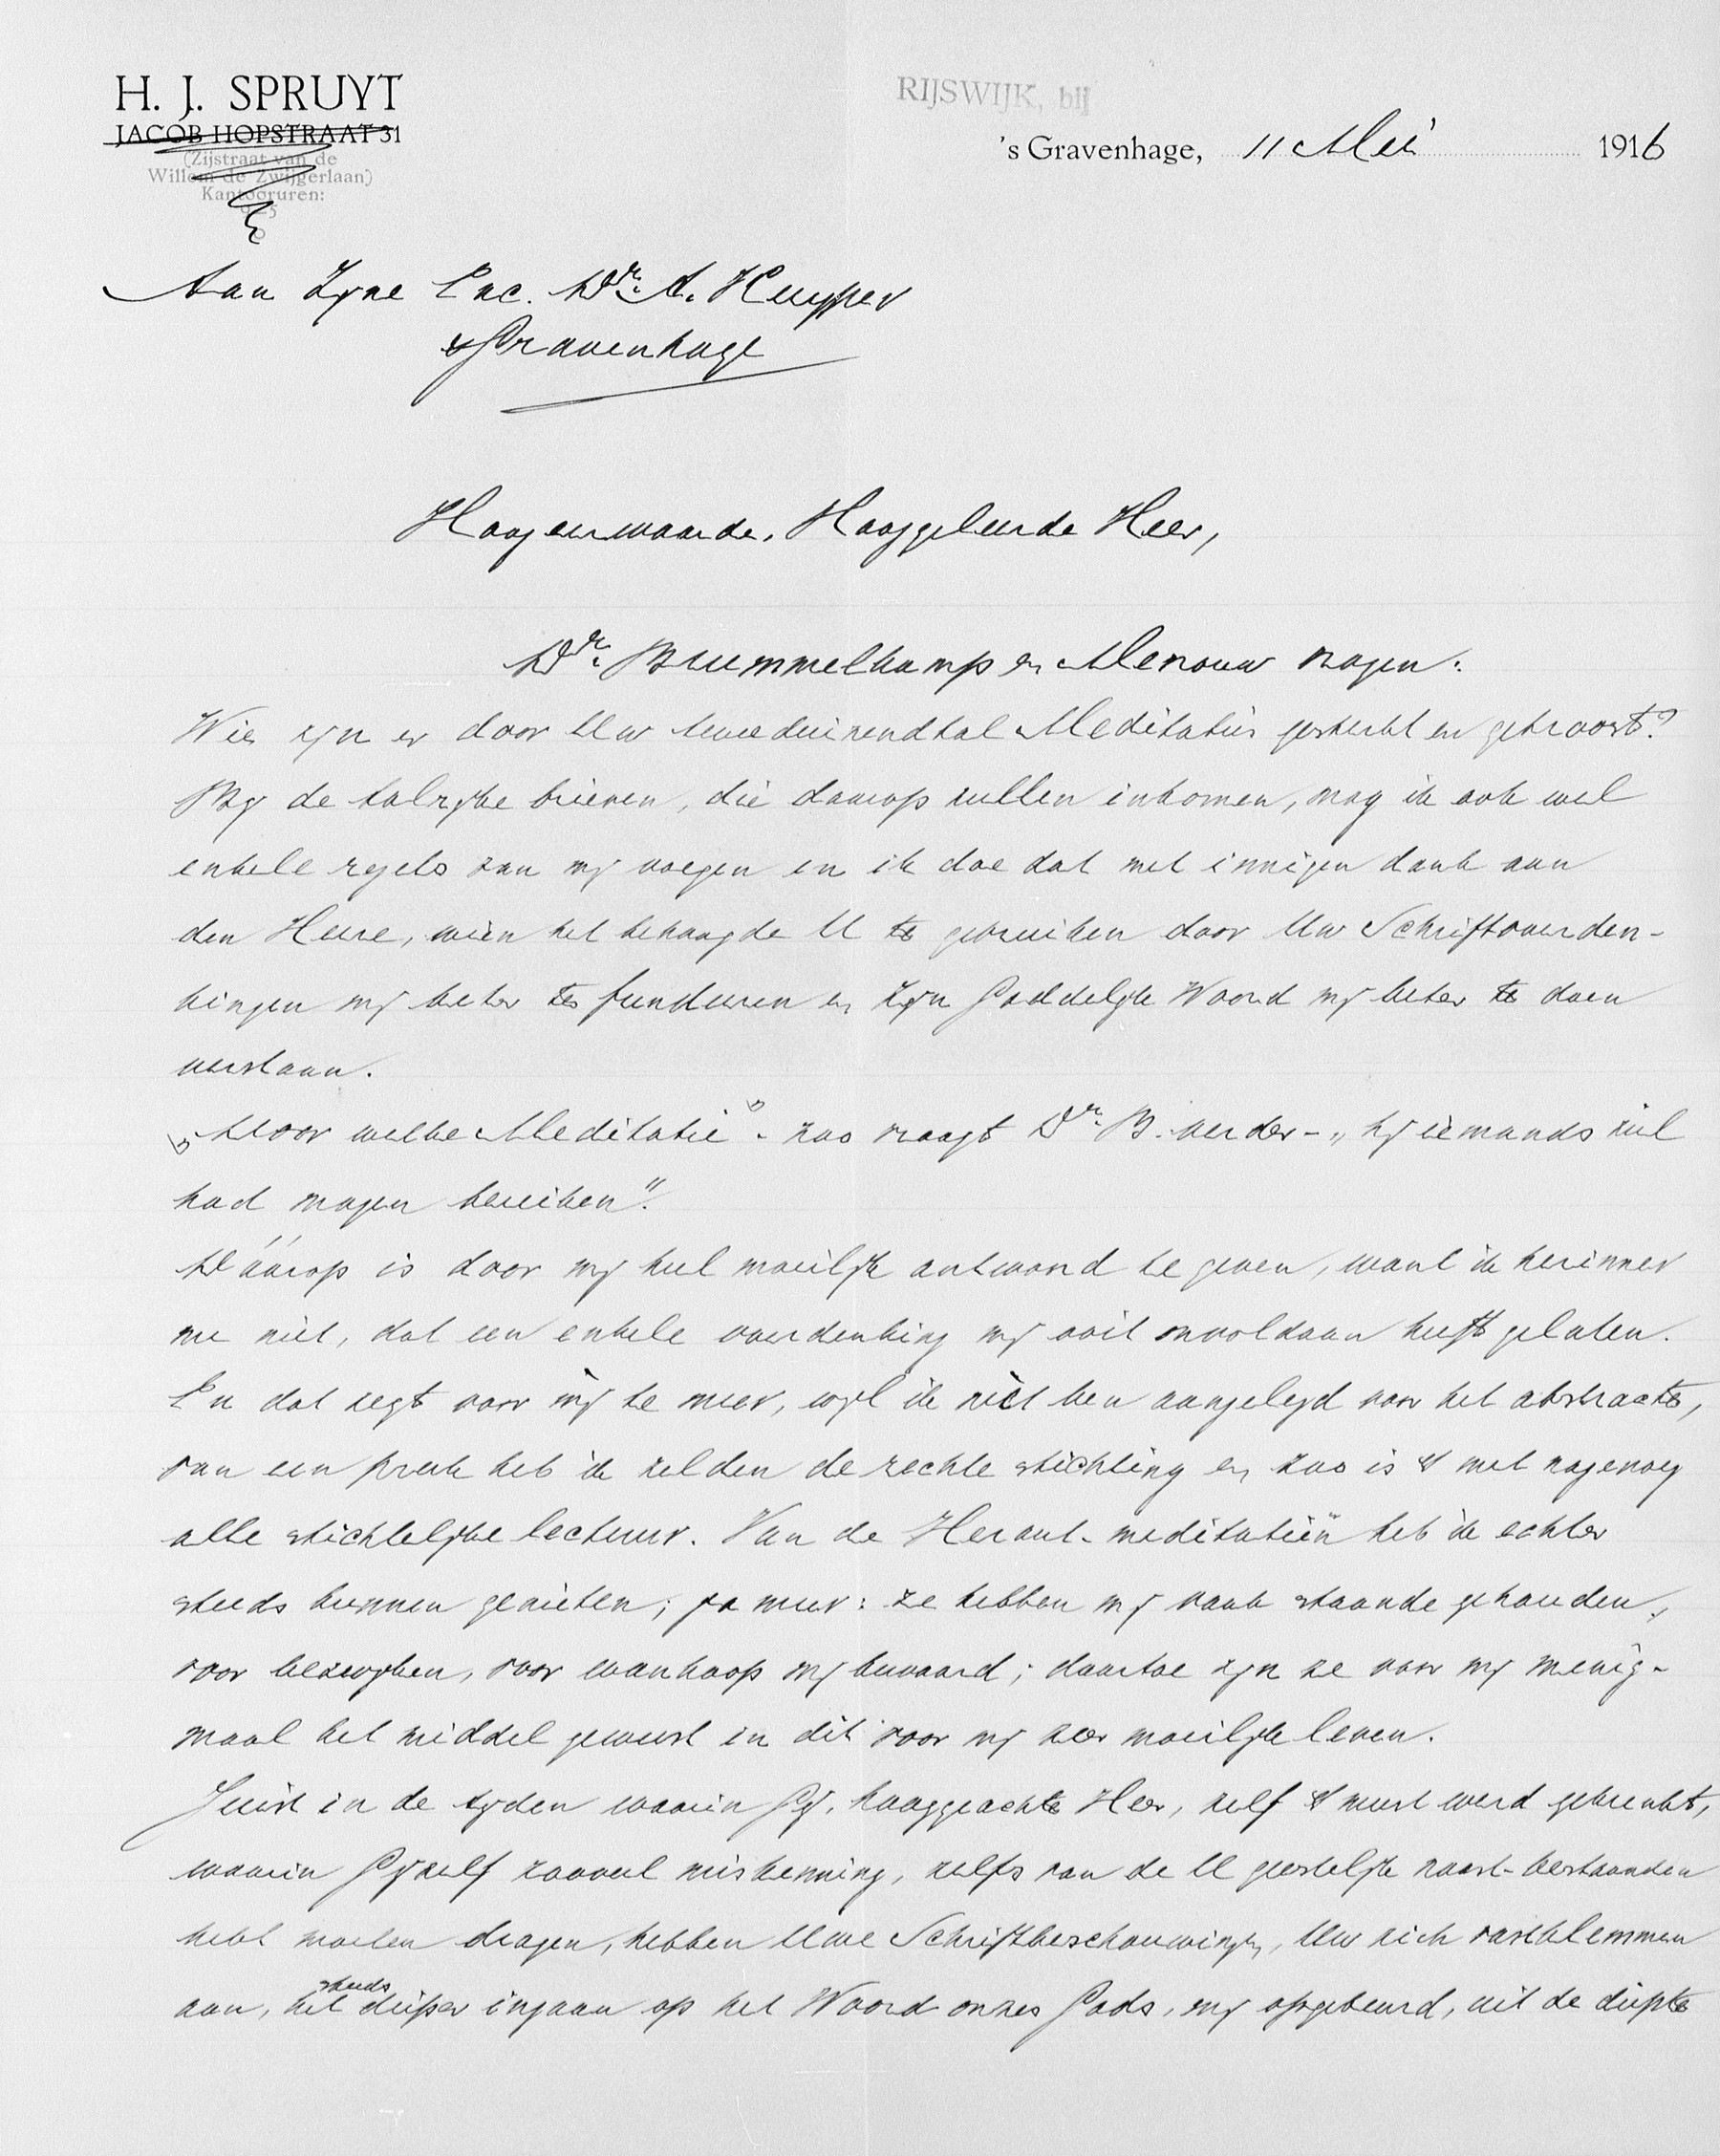 H. J. SPRUYT
JACOB HOPSTRAAT 31
(Zijstraat van de
Willem de Zwijgerlaan)
Kantooruren:
RIJSWIJK, bij
's Gravenhage, 11 Mei 1916
Aan Zyne Exc. Dr. A. Kuyper
's Gravenhage
Hoogeerwaarde, Hooggeleerde Heer,
Dr. Brummelkamp en Mevrouw vragen:
Wie zyn er door Uw tweeduizendtal Meditatiën gesterkt en getroost?
By de talryke brieven, die daarop zullen inkomen, mag ik ook wel
enkele regels van my voegen en ik doe dat met innigen dank aan
den Heere, wien het behaagde U te gebruiken door Uw Schriftoverden-
kingen my beter te fundeeren en Zyn Goddelyk Woord my beter te doen
verstaan.
"Door welke Meditatie" - zoo vraagt Dr. B. verder - "hy iemands ziel
had mogen bereiken".
Dáárop is door my heel moeilyk antwoord te geven, want ik herinner
me niet, dat een enkele overdenking my ooit onvoldaan heeft gelaten.
En dat zegt voor my te meer, wyl ik niet ben aangelegd voor het abstracte,
van een preek heb ik zelden de rechte stichting en zoo is 't met nagenoeg
alle stichtelyke lectuur. Van de Heraut-meditatiën heb ik echter
steeds kunnen genieten; ja meer: ze hebben my vaak staande gehouden,
voor bezwyken, voor wanhoop my bewaard; daartoe zyn ze voor my menig-
maal het middel geweest in dit voor my zeer moeilyke leven.
Juist in de tyden waarin Gy, hooggeachte Heer, zelf 't meest werd gekrenkt,
waarin Gy zelf zooveel miskenning, zelfs van de U geestelyk naast-bestaanden
hebt moeten dragen, hebben Uwe Schriftbeschouwingen, Uw zich vastklemmen
aan, het steeds dieper ingaan op het Woord onzes Gods, my opgebeurd, uit de diepte